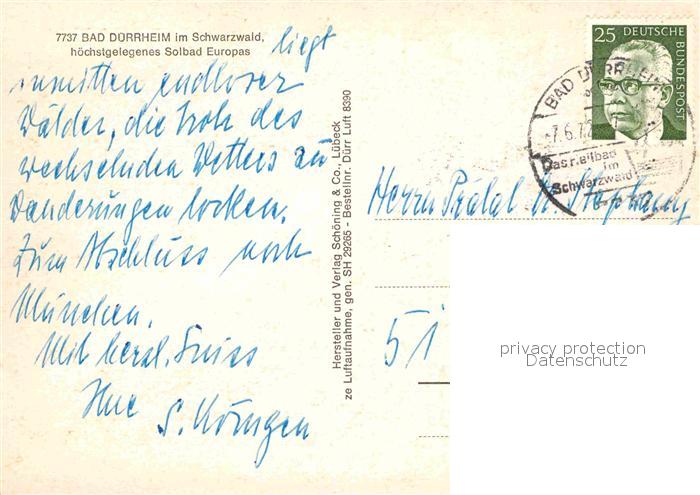 7737 BAD DÜRRHEIM im Schwarzwald,
höchstgelegenes Solbad Europas
liegt
inmitten endloser
Wälder, die trotz des
wechselnden Wetters zu
Wanderungen locken.
Zum Abschluss noch
München.
Mit herzl. Gruss
Ihre
Hersteller und Verlag Schöning & Co., Lübeck
ze Luftaufnahme, gen. SH 29265 - Bestellnr. Dürr Luft 8390
25 DEUTSCHE
BUNDESPOST
BAD DÜRRHEIM
-7.6.7
Das Heilbad
im
Schwarzwald
Herrn Prälat
51
privacy protection
Datenschutz